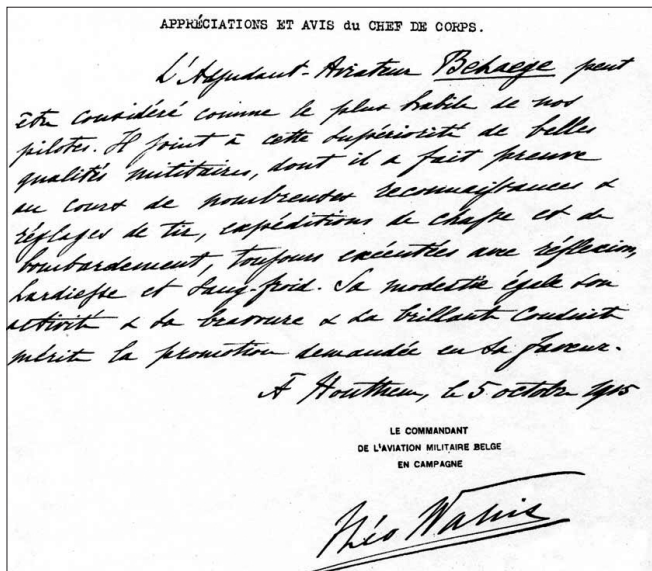 APPRÉCIATIONS ET AVIS du CHEF DE CORPS.
L'Adjudant-Aviateur Behaege peut
être considéré comme le plus habile de nos
pilotes. Il joint à cette supériorité de belles
qualités militaires, dont il a fait preuve
au cours de nombreuses reconnaissances &
réglages de tir, expéditions de chasse et de
bombardement, toujours exécutées avec réflexion,
hardiesse et sang-froid. Sa modestie égale son
activité & sa bravoure & sa brillante conduite
mérite la promotion demandée en sa faveur.
À Houthem, le 5 octobre 1915
LE COMMANDANT
DE L'AVIATION MILITAIRE BELGE
EN CAMPAGNE
Théo Wahis